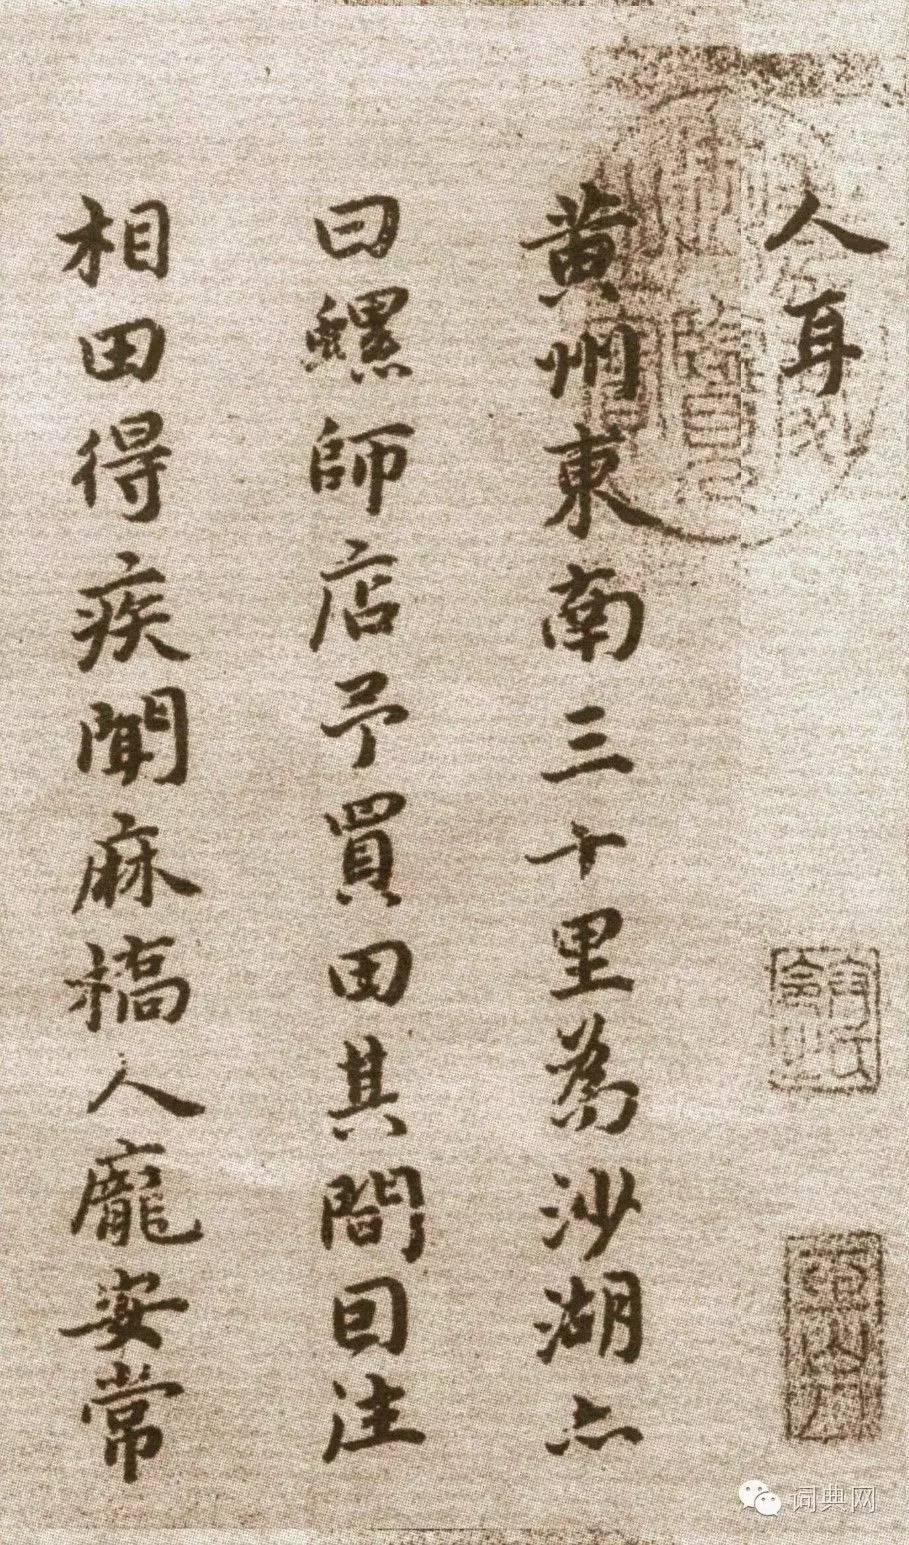 人耳
黄州東南三十里為沙湖亦
曰螺師店予買田其間因往
相田得疾聞麻橋人龐安常
词典网